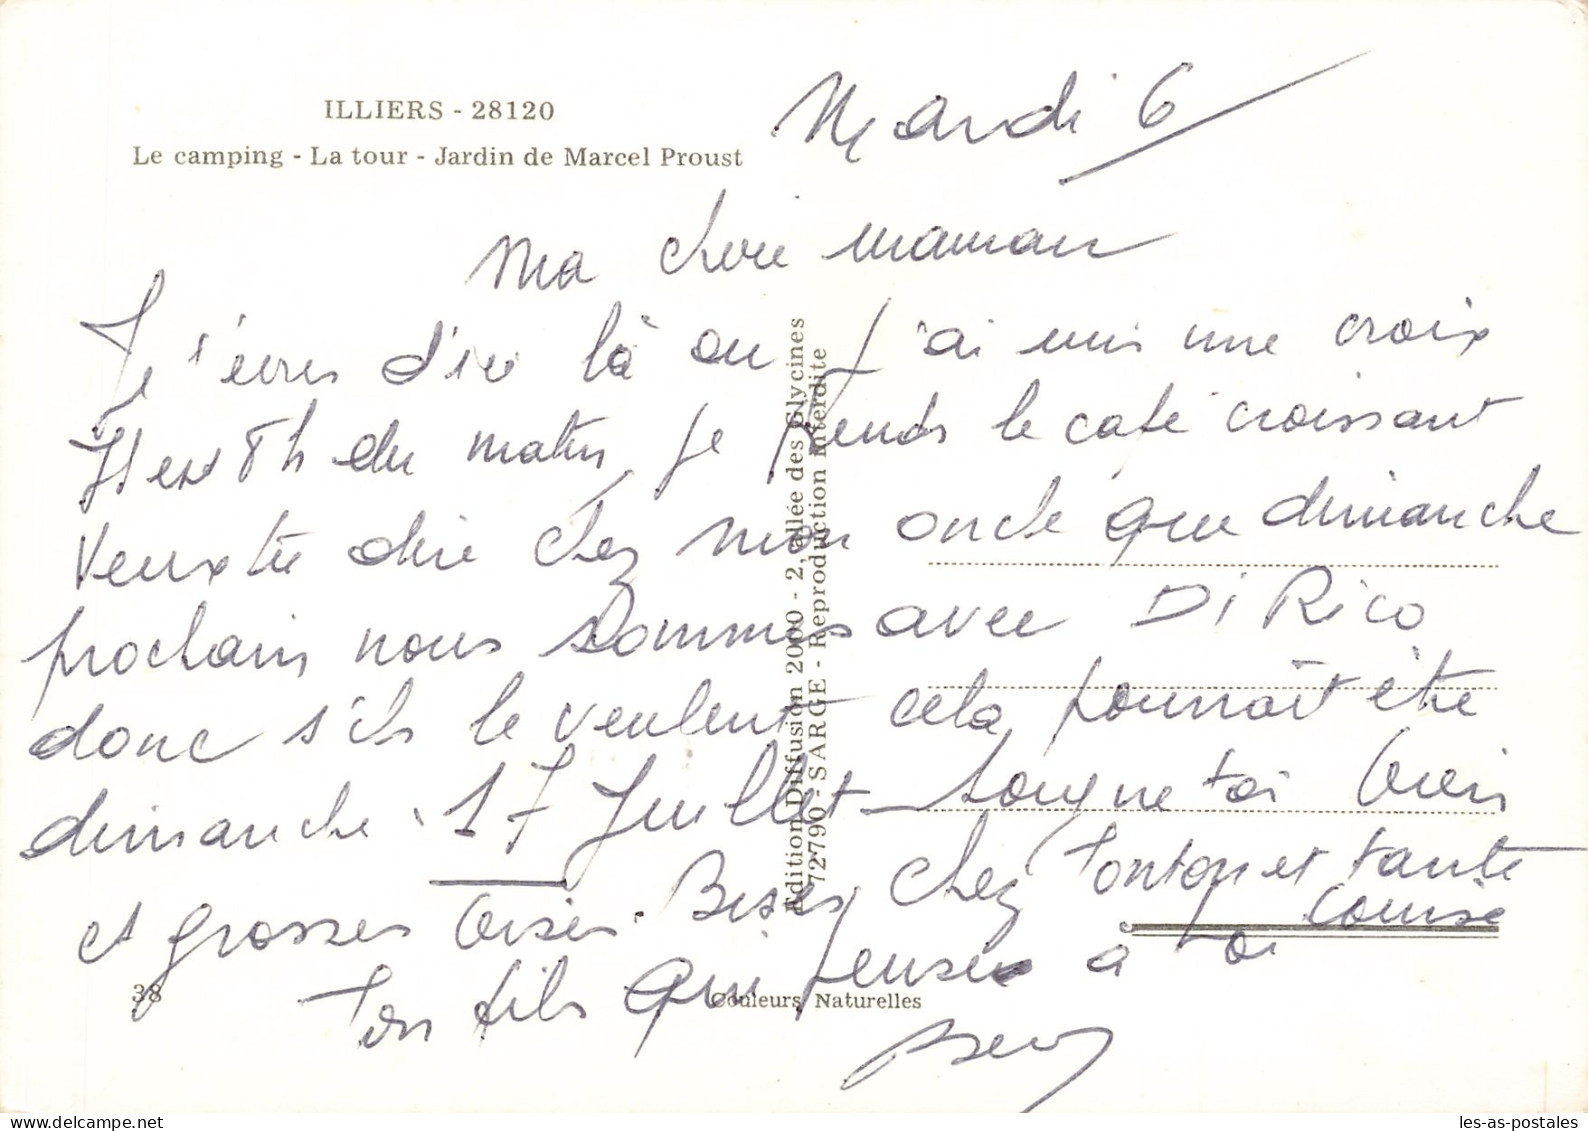 ILLIERS - 28120
Le camping - La tour - Jardin de Marcel Proust
Mardi 6
Ma cherie maman
Je t'écris d'ici là ou j'ai mis une croix
Il est 8h du matin je prends le café croissant
Veux tu dire chez mon oncle que dimanche
prochain nous sommes avec Di Rico
donc s'ils le veulent cela pourrait être
dimanche 17 Juillet - soigne toi bien
et grosses bises. Bises chez tonton et tante
Louise
Ton fils qui pense à toi
Editions Diffusion 2000 - 2, allée des Glycines
72790 - SARGE - Reproduction interdite
38
Couleurs Naturelles
les-as-postales